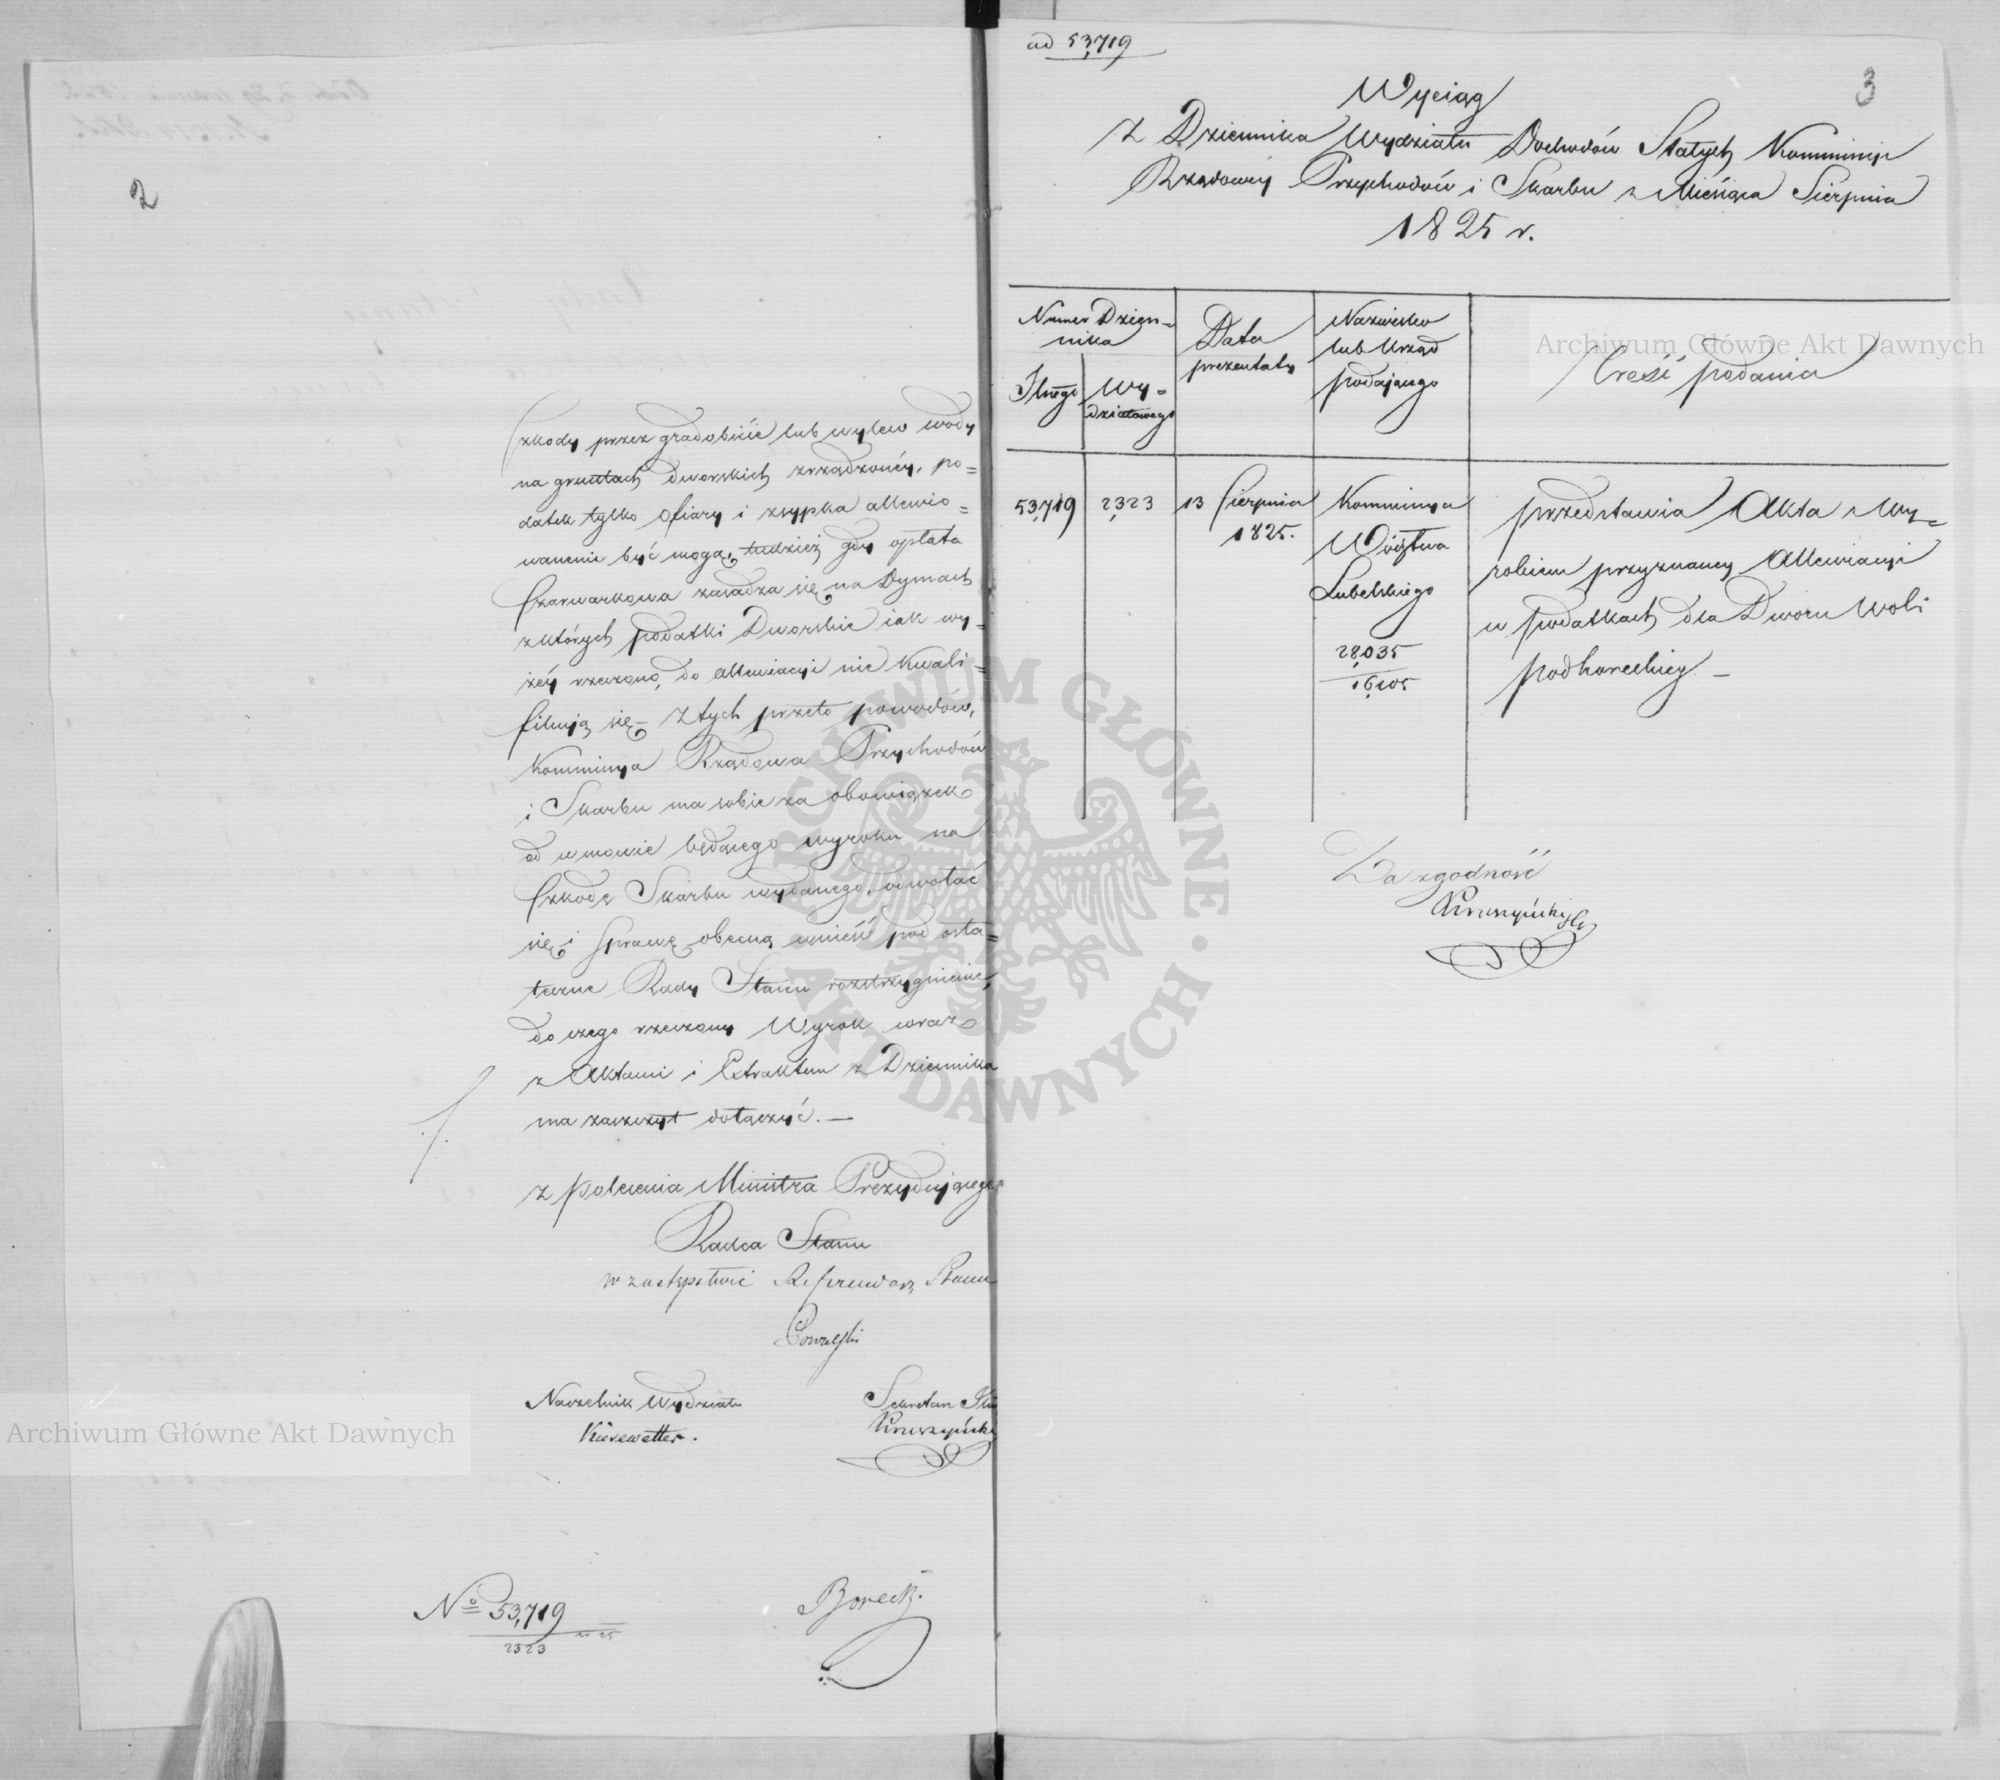 2
szkody przez gradobicie lub wylew wody
na gruntach dworskich zrządzonéy, po=
datek tylko ofiary i zsypka allewio=
wanemi być mogą, tudzież gdy opłata
Szarwarkowa zasadza się na Dymach
z których podatki Dworskie iak wy=
żéy rzeczono, do allewiacyi nie kwali=
fikują się – Z tych przeto powodów,
Kommissya Rządowa Przychodów
i Skarbu ma sobie za obowiązek
od w mowie będącego wyroku na
szkodę Skarbu wydanego, odwołać
się i sprawę obecną wnieść pod osta=
teczne Rady Stanu rozstrzygnienie,
do czego rzeczony Wyrok wraz
z Aktami i Extraktem z Dziennika
ma zaszczyt dołączyć. —
z polecenia Ministra Prezydującego
Radca Stanu
w zastępstwie Referendarz Stanu
Naczelnik Wydziału
Kiesewetter.
Sekretarz Jlny
Kruszyński
No 53,719
2323
Borecki
ad 53,719
3
Wyciąg
Z Dziennika Wydziału Dochodów Stałych Kommissyi
Rządowéy Przychodów i Skarbu z Miesiąca Sierpnia
1825 r.
Numer Dzien=
nika
Jlnego
Wy=
działowego
Data
prezentaty
Nazwisko
lub Urząd
podającego
Treść podania
53,719
2323
13 Sierpnia
1825.
Kommissya
Wójztwa
Lubelskiego
28,035
16,105
przedstawia Akta z Wy=
robieniu przyznaney Allewiacyi
w podatkach dla Dworu Woli
podhoreckiey –
Za zgodność
Kruszyński
Archiwum Główne Akt Dawnych
Archiwum Główne Akt Dawnych
ARCHIWUM GŁÓWNE · AKT DAWNYCH ·